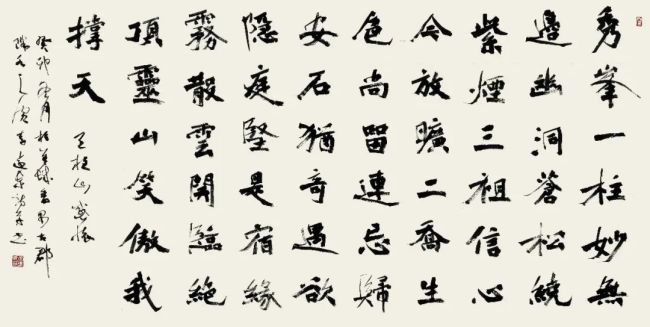 秀峯一柱妙無
邊幽洞蒼松繞
紫煙三祖信心
令放曠二喬生
色尚留連忘歸
安石猶奇遇欲
隱庭堅是宿緣
霧散雲開臨絕
頂靈山笑傲我
撐天
天柱山感懷
癸卯月於古郡